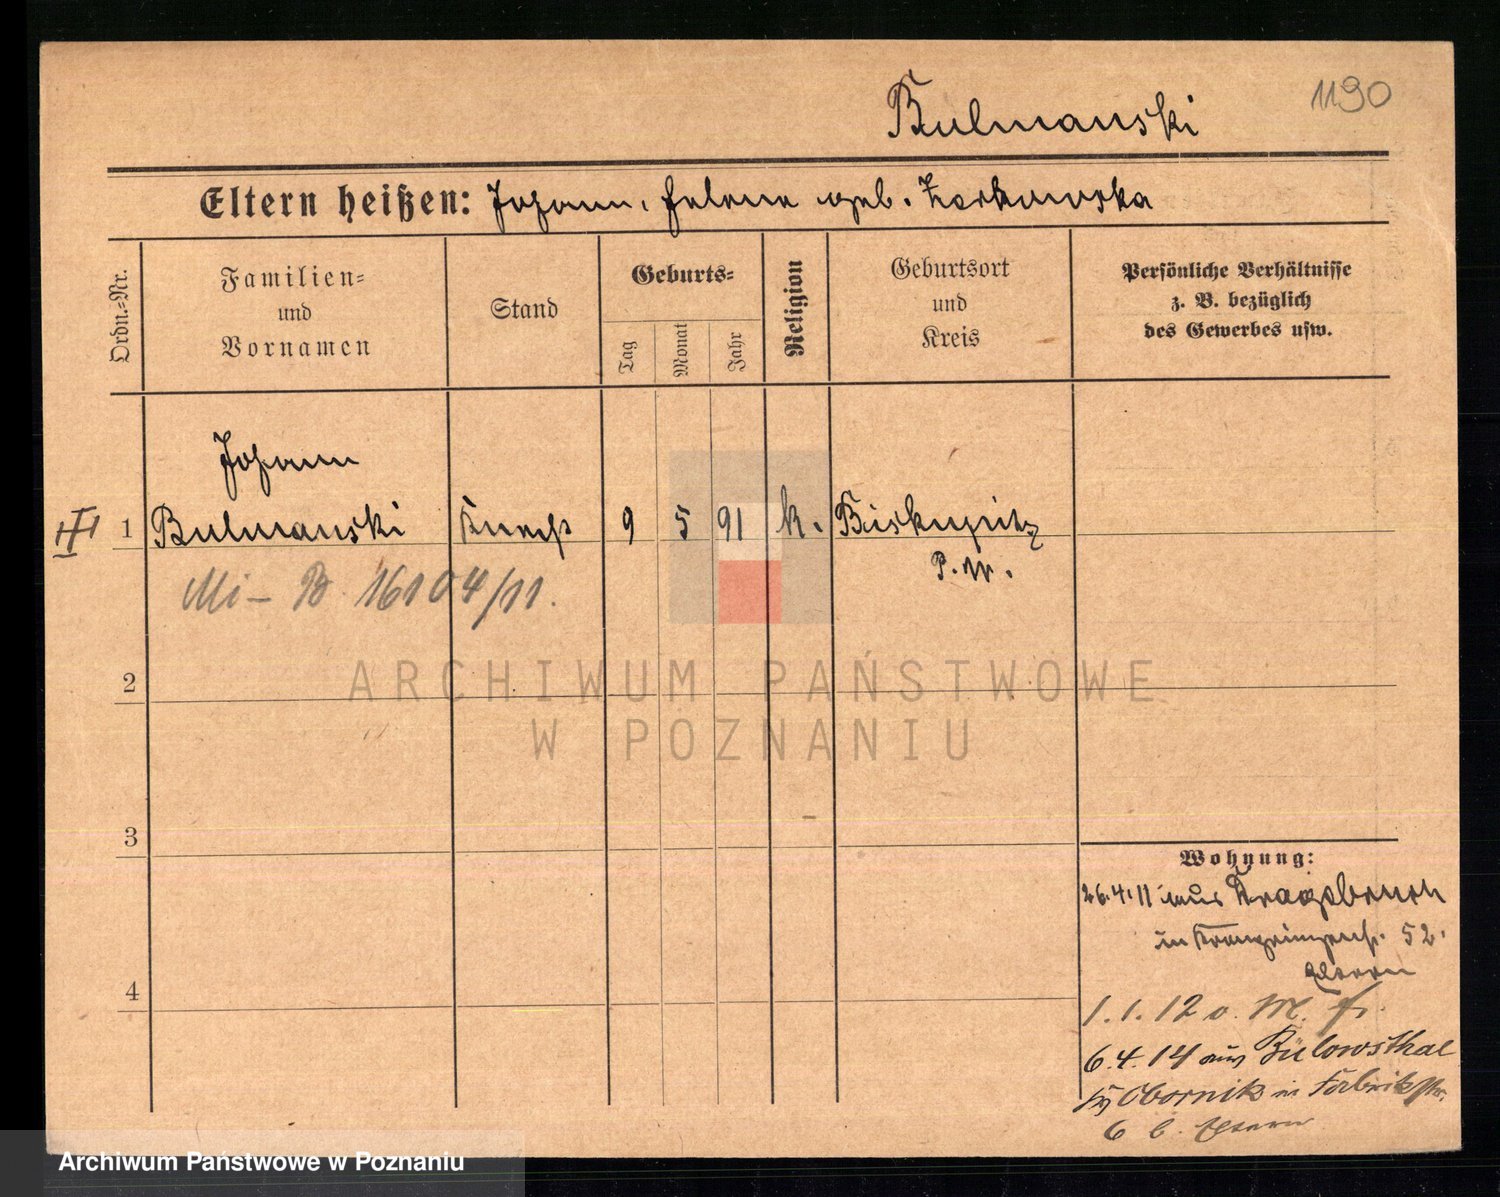 1190
Bulmanski
Eltern heißen: Johann, Helene geb. Zorkowska
Ordn.-Nr.
Familien-
und
Vornamen
Stand
Geburts-
Tag
Monat
Jahr
Religion
Geburtsort
und
Kreis
Persönliche Verhältnisse
z. B. bezüglich
des Gewerbes usw.
Johann
III 1 Bulmanski Knecht 9 5 91 k. Biskupitz
P. W.
Mi - B. 16104/11.
2
ARCHIWUM PAŃSTWOWE
W POZNANIU
3
4
Wohnung:
26.4.11 aus
in 52.
Eltern
1.1.12 v. M. f.
6.4.14 aus Bülowsthal
Kr Obornik in Fabrikstr.
6 b. Eltern
Archiwum Państwowe w Poznaniu